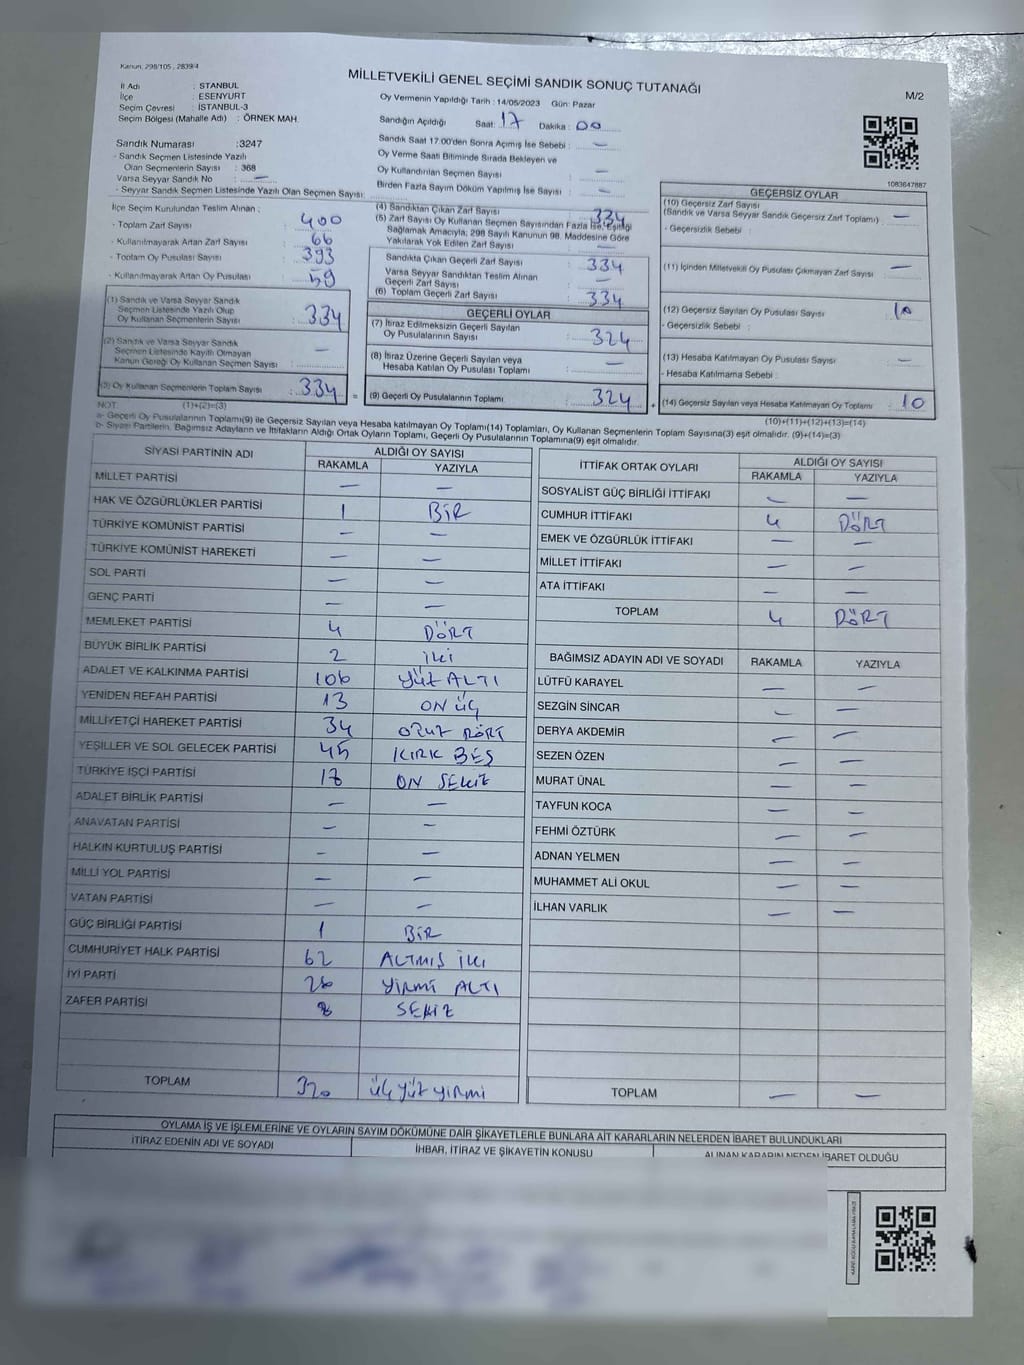 Kanun, 298/105 , 2839/4
MİLLETVEKİLİ GENEL SEÇİMİ SANDIK SONUÇ TUTANAĞI
M/2
İl Adı : STANBUL
İlçe : ESENYURT
Seçim Çevresi : İSTANBUL-3
Seçim Bölgesi (Mahalle Adı) : ÖRNEK MAH.
Oy Vermenin Yapıldığı Tarih : 14/05/2023 Gün: Pazar
Sandığın Açıldığı Saat: 17 Dakika : 00
Sandık Saat 17.00'den Sonra Açımış İse Sebebi : —
Oy Verme Saati Bitiminde Sırada Bekleyen ve
Oy Kullandırılan Seçmen Sayısı : —
Birden Fazla Sayım Döküm Yapılmış İse Sayısı : —
Sandık Numarası :3247
- Sandık Seçmen Listesinde Yazılı
Olan Seçmenlerin Sayısı : 368
Varsa Seyyar Sandık No : —
- Seyyar Sandık Seçmen Listesinde Yazılı Olan Seçmen Sayısı:
1083647887
İlçe Seçim Kurulundan Teslim Alınan ;
- Toplam Zarf Sayısı : 400
- Kullanılmayarak Artan Zarf Sayısı : 66
- Toplam Oy Pusulası Sayısı : 393
- Kullanılmayarak Artan Oy Pusulası : 59
(1) Sandık ve Varsa Seyyar Sandık
Seçmen Listesinde Yazılı Olup
Oy Kullanan Seçmenlerin Sayısı : 334
(2) Sandık ve Varsa Seyyar Sandık
Seçmen Listesinde Kayıtlı Olmayan
Kanun Gereği Oy Kullanan Seçmen Sayısı : —
(3) Oy Kullanan Seçmenlerin Toplam Sayısı : 334 =
(4) Sandıktan Çıkan Zarf Sayısı : 334
(5) Zarf Sayısı Oy Kullanan Seçmen Sayısından Fazla İse, Eşitliği
Sağlamak Amacıyla, 298 Sayılı Kanunun 98. Maddesine Göre
Yakılarak Yok Edilen Zarf Sayısı : —
Sandıkta Çıkan Geçerli Zarf Sayısı : 334
Varsa Seyyar Sandıktan Teslim Alınan
Geçerli Zarf Sayısı : —
(6) Toplam Geçerli Zarf Sayısı : 334
GEÇERLİ OYLAR
(7) İtiraz Edilmeksizin Geçerli Sayılan
Oy Pusulalarının Sayısı : 324
(8) İtiraz Üzerine Geçerli Sayılan veya
Hesaba Katılan Oy Pusulası Toplamı : —
(9) Geçerli Oy Pusulalarının Toplamı : 324 +
GEÇERSİZ OYLAR
(10) Geçersiz Zarf Sayısı
(Sandık ve Varsa Seyyar Sandık Geçersiz Zarf Toplamı) : —
- Geçersizlik Sebebi :
(11) İçinden Milletvekili Oy Pusulası Çıkmayan Zarf Sayısı : —
(12) Geçersiz Sayılan Oy Pusulası Sayısı : 10
- Geçersizlik Sebebi :
(13) Hesaba Katılmayan Oy Pusulası Sayısı : —
- Hesaba Katılmama Sebebi :
(14) Geçersiz Sayılan veya Hesaba Katılmayan Oy Toplamı : 10
NOT: (1)+(2)=(3)
(10)+(11)+(12)+(13)=(14)
a- Geçerli Oy Pusulalarının Toplamı(9) ile Geçersiz Sayılan veya Hesaba katılmayan Oy Toplamı(14) Toplamları, Oy Kullanan Seçmenlerin Toplam Sayısına(3) eşit olmalıdır. (9)+(14)=(3)
b- Siyasi Partilerin, Bağımsız Adayların ve İttifakların Aldığı Ortak Oyların Toplamı, Geçerli Oy Pusulalarının Toplamına(9) eşit olmalıdır.
SİYASİ PARTİNİN ADI ALDIĞI OY SAYISI
RAKAMLA YAZIYLA
MİLLET PARTİSİ — —
HAK VE ÖZGÜRLÜKLER PARTİSİ 1 BİR
TÜRKİYE KOMÜNİST PARTİSİ — —
TÜRKİYE KOMÜNİST HAREKETİ — —
SOL PARTİ — —
GENÇ PARTİ — —
MEMLEKET PARTİSİ 4 DÖRT
BÜYÜK BİRLİK PARTİSİ 2 iki
ADALET VE KALKINMA PARTİSİ 106 yüz ALTI
YENİDEN REFAH PARTİSİ 13 ON üç
MİLLİYETÇİ HAREKET PARTİSİ 34 OTUZ DÖRT
YEŞİLLER VE SOL GELECEK PARTİSİ 45 KIRK BEŞ
TÜRKİYE İŞÇİ PARTİSİ 18 ON SEKİZ
ADALET BİRLİK PARTİSİ — —
ANAVATAN PARTİSİ — —
HALKIN KURTULUŞ PARTİSİ — —
MİLLİ YOL PARTİSİ — —
VATAN PARTİSİ — —
GÜÇ BİRLİĞİ PARTİSİ 1 BİR
CUMHURİYET HALK PARTİSİ 62 ALTMIŞ iki
İYİ PARTİ 26 YİRMİ ALTI
ZAFER PARTİSİ 8 SEKİZ
TOPLAM 320 üç yüz yirmi
İTTİFAK ORTAK OYLARI ALDIĞI OY SAYISI
RAKAMLA YAZIYLA
SOSYALİST GÜÇ BİRLİĞİ İTTİFAKI — —
CUMHUR İTTİFAKI 4 DÖRT
EMEK VE ÖZGÜRLÜK İTTİFAKI — —
MİLLET İTTİFAKI — —
ATA İTTİFAKI — —
TOPLAM 4 DÖRT
BAĞIMSIZ ADAYIN ADI VE SOYADI RAKAMLA YAZIYLA
LÜTFÜ KARAYEL — —
SEZGİN SİNCAR — —
DERYA AKDEMİR — —
SEZEN ÖZEN — —
MURAT ÜNAL — —
TAYFUN KOCA — —
FEHMİ ÖZTÜRK — —
ADNAN YELMEN — —
MUHAMMET ALİ OKUL — —
İLHAN VARLIK — —
TOPLAM — —
OYLAMA İŞ VE İŞLEMLERİNE VE OYLARIN SAYIM DÖKÜMÜNE DAİR ŞİKAYETLERLE BUNLARA AİT KARARLARIN NELERDEN İBARET BULUNDUKLARI
İTİRAZ EDENİN ADI VE SOYADI İHBAR, İTİRAZ VE ŞİKAYETİN KONUSU ALINAN KARARIN NEDEN İBARET OLDUĞU